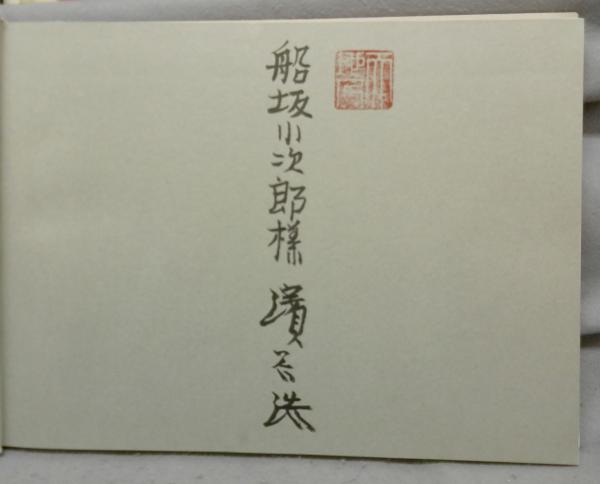 船坂小次郎様
濱谷浩